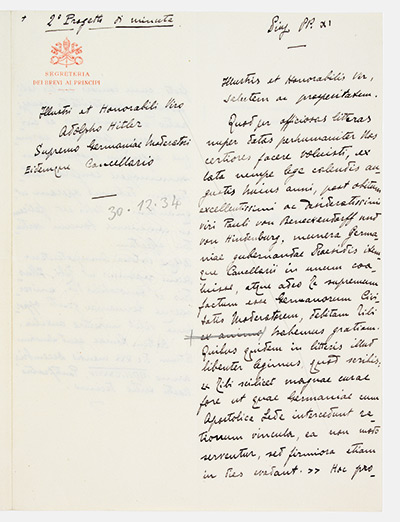 2º Progetto di minuta
SEGRETERIA
DEI BREVI AI PRINCIPI
Illustri et Honorabili Viro
Adolpho Hitler
Supremo Germaniae Moderatori
Eidemque Cancellario
30.12.34
Pius PP. XI
Illustris et Honorabilis Vir,
salutem ac prosperitatem.
Quod per officiosas litteras
nuper datas perhumaniter Nos
certiores facere voluisti, ex
lata nempe lege calendis au
gustis huius anni, post obitum
excellentissimi ac desideratissimi
viri Pauli von Beneckendorff und
von Hindenburg, munera Germa
niae gubernandae Praesidis idem
que Cancellarii in unum coa
luisse, atque adeo te supremum
factum esse Germanorum Civi
tatis Moderatorem, debitam tibi
ex animo habemus gratiam.
Quibus quidem in litteris illud
libenter legimus, quod scribis:
tibi scilicet magnae curae
fore ut quae Germaniae cum
Apostolica Sede intercedunt ra
tionum vincula, ea non modo
serventur, sed firmiora etiam
in dies evadant. >> Hoc pro